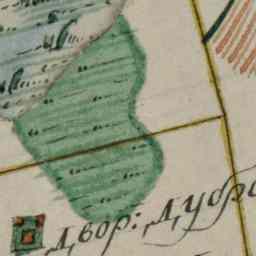 двор: дубро